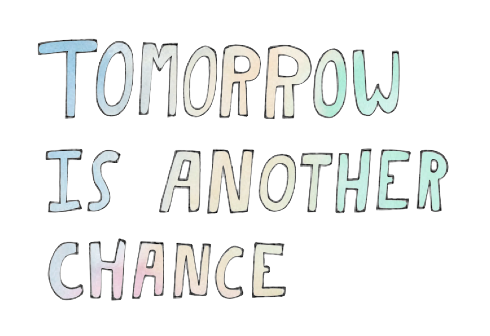 TOMORROW
IS ANOTHER
CHANCE